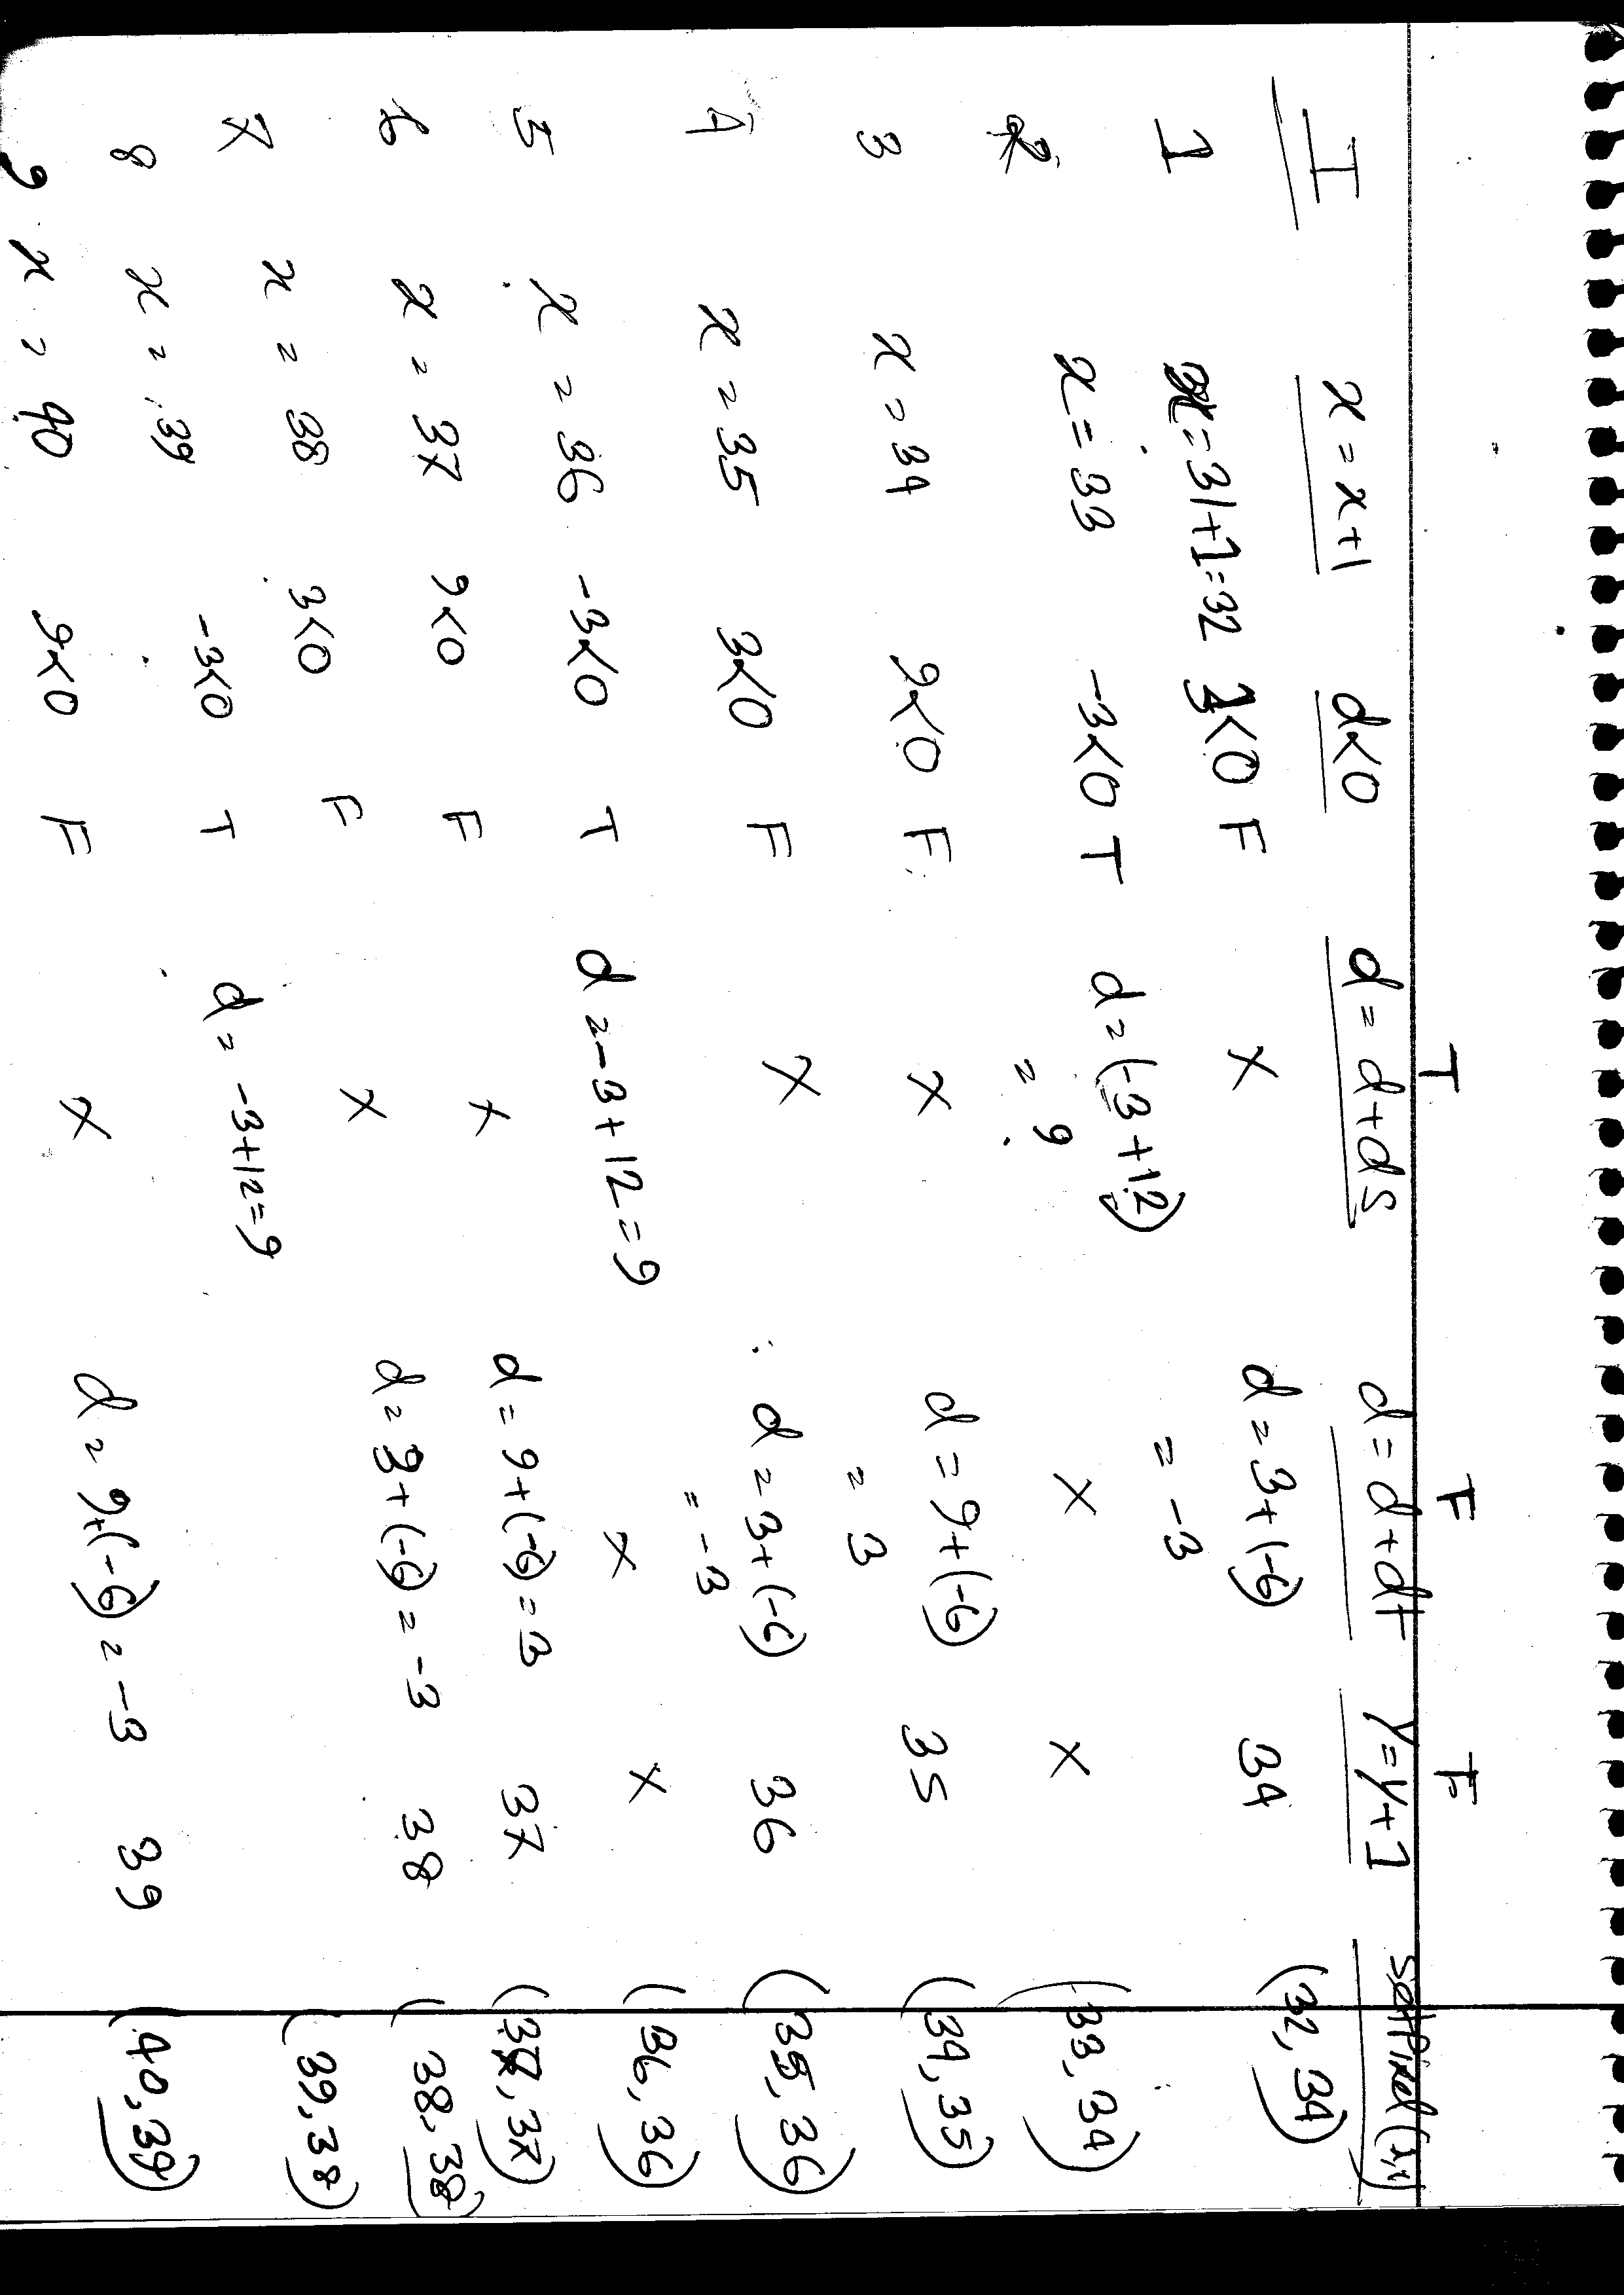 T F F
I x = x+1 d<0 d = d+ds d = d+dt y=y+1 SetPixel(x,y)
1 x=31+1=32 3<0 F × d = 3+(-6) 34 (32, 34)
= -3
2 x = 33 -3<0 T d = (-3+12) × × (33, 34)
= 9
3 x = 34 9<0 F × d = 9+(-6) 35 (34, 35)
= 3
4 x = 35 3<0 F × d = 3+(-6) 36 (35, 36)
= -3
5 x = 36 -3<0 T d = -3+12=9 × × (36, 36)
6 x = 37 9<0 F × d = 9+(-6)=3 37 (37, 37)
7 x = 38 3<0 F × d = 3+(-6) = -3 38 (38, 38)
8 x = 39 -3<0 T d = -3+12=9 (39, 38)
9 x = 40 9<0 F × d = 9+(-6) = -3 39 (40, 39)